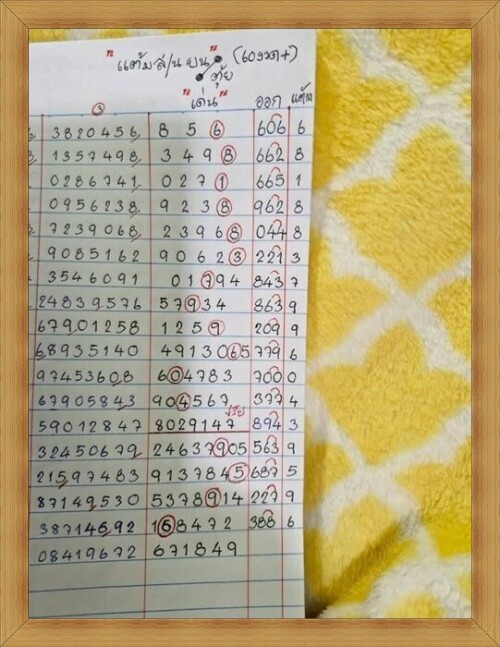 "แต้ม ล่/น ยน" (เองวด+)
ตุ้ย
"เด่น" ออก แต้ม
3820456 8 5 6 606 6
1357498 3 4 9 8 662 8
0286741 0 2 7 1 665 1
0956238 9 2 3 8 962 8
7239068 2 3 9 6 8 044 8
9085162 9 0 6 2 3 221 3
3546091 0 1 7 9 4 843 7
24839576 5 7 9 3 4 863 9
67901258 1 2 5 9 209 9
68935140 49130665 779 6
97453608 604783 700 0
67905843 904567 377 4
59012847 8029147 894 3
32450679 24637905 563 9
21597483 9137845 687 5
87149530 5378914 227 9
38714692 168472 388 6
08419672 671849